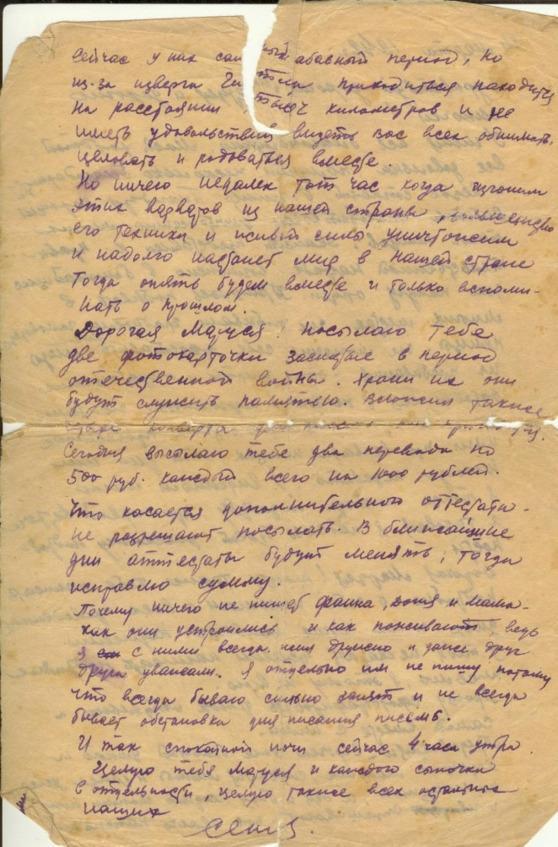 Сейчас у нас самый абасный период, но
из-за изверга приходиться находится
на расстоянии тысяч километров и не
иметь удовольствия видеть вас всех обнимать,
целовать и родоваться вместе.
Но ничего недалек тот час когда изгоним
этих варваров из нашей страны,
его техники и живой силы уничтожим
и надолго настанет мир в нашей стране
Тогда опять будем вместе и только вспоми-
нать о прошлом.
Дорогая Маруся посылаю тебе
две фотокарточки заснятые в период
отечественной войны. Храни их они
будут служить памятью. Вложил также
конверта для писем
Сегодня высылаю тебе два перевода по
500 руб. каждый всего на 1000 рублей.
Что касается дополнительного аттестата-
не разрешают посылать. В ближайшие
дни аттестаты будут менять, тогда
исправлю сумму.
Почему ничего не пишет Фаина, и мама-
как они устроились и как поживают, ведь
я с ними всегда жил дружно и даже друг
друга уважали. Я отдельно им не пишу потому
что всегда бываю сильно занят и не всегда
бывает обстановка для писания письмь.
И так спокойной ночи сейчас 4 часа утра
Целую тебя Маруся и каждого сыночка
в отдельности, целую также всех остальных
наших